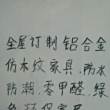 全屋订制铝合金
仿木纹家具,防水
防潮,零甲醛,绿
色环保家具